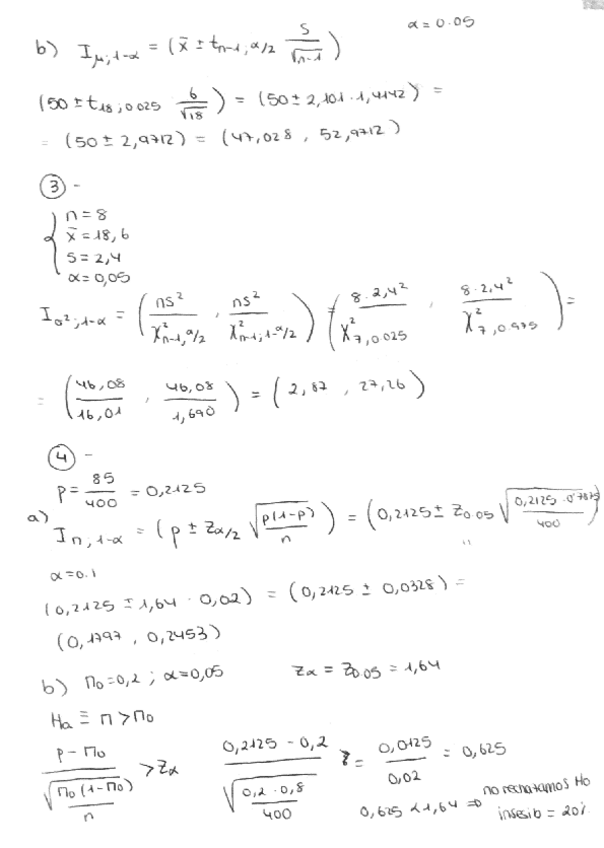 α = 0.05
b) I μ;1-α = (x̄ ± t n-1, α/2 S/√(n-1))
(50 ± t 18; 0'025 6/√18) = (50 ± 2,101 · 1,4142) =
= (50 ± 2,9712) = (47,028 , 52,9712)
③ -
n = 8
x̄ = 18,6
S = 2,4
α = 0,05
I σ²; 1-α = (ns²/χ² n-1, α/2 , ns²/χ² n-1; 1-α/2) = (8 · 2,4²/χ² 7, 0'025 , 8 · 2,4²/χ² 7, 0.975) =
= (46,08/16,01 , 46,08/1,690) = (2,87 , 27,26)
④ -
p = 85/400 = 0,2125
a) I π, 1-α = (p ± Zα/2 √(p(1-p)/n)) = (0,2125 ± Z 0.05 √(0,2125 · 0'7875/400))
α = 0.1
(0,2125 ± 1,64 · 0,02) = (0,2125 ± 0,0328) =
(0,1797 , 0,2453)
b) Π₀ = 0,2 ; α = 0,05 Zα = Z 0.05 = 1,64
Ha ≡ Π > Π₀
p - Π₀/√(Π₀(1-Π₀)/n) > Zα 0,2125 - 0,2/√(0,2 · 0,8/400) = 0,0125/0,02 = 0,625
0,625 < 1,64 ⇒ no rechazamos Ho
= 20%